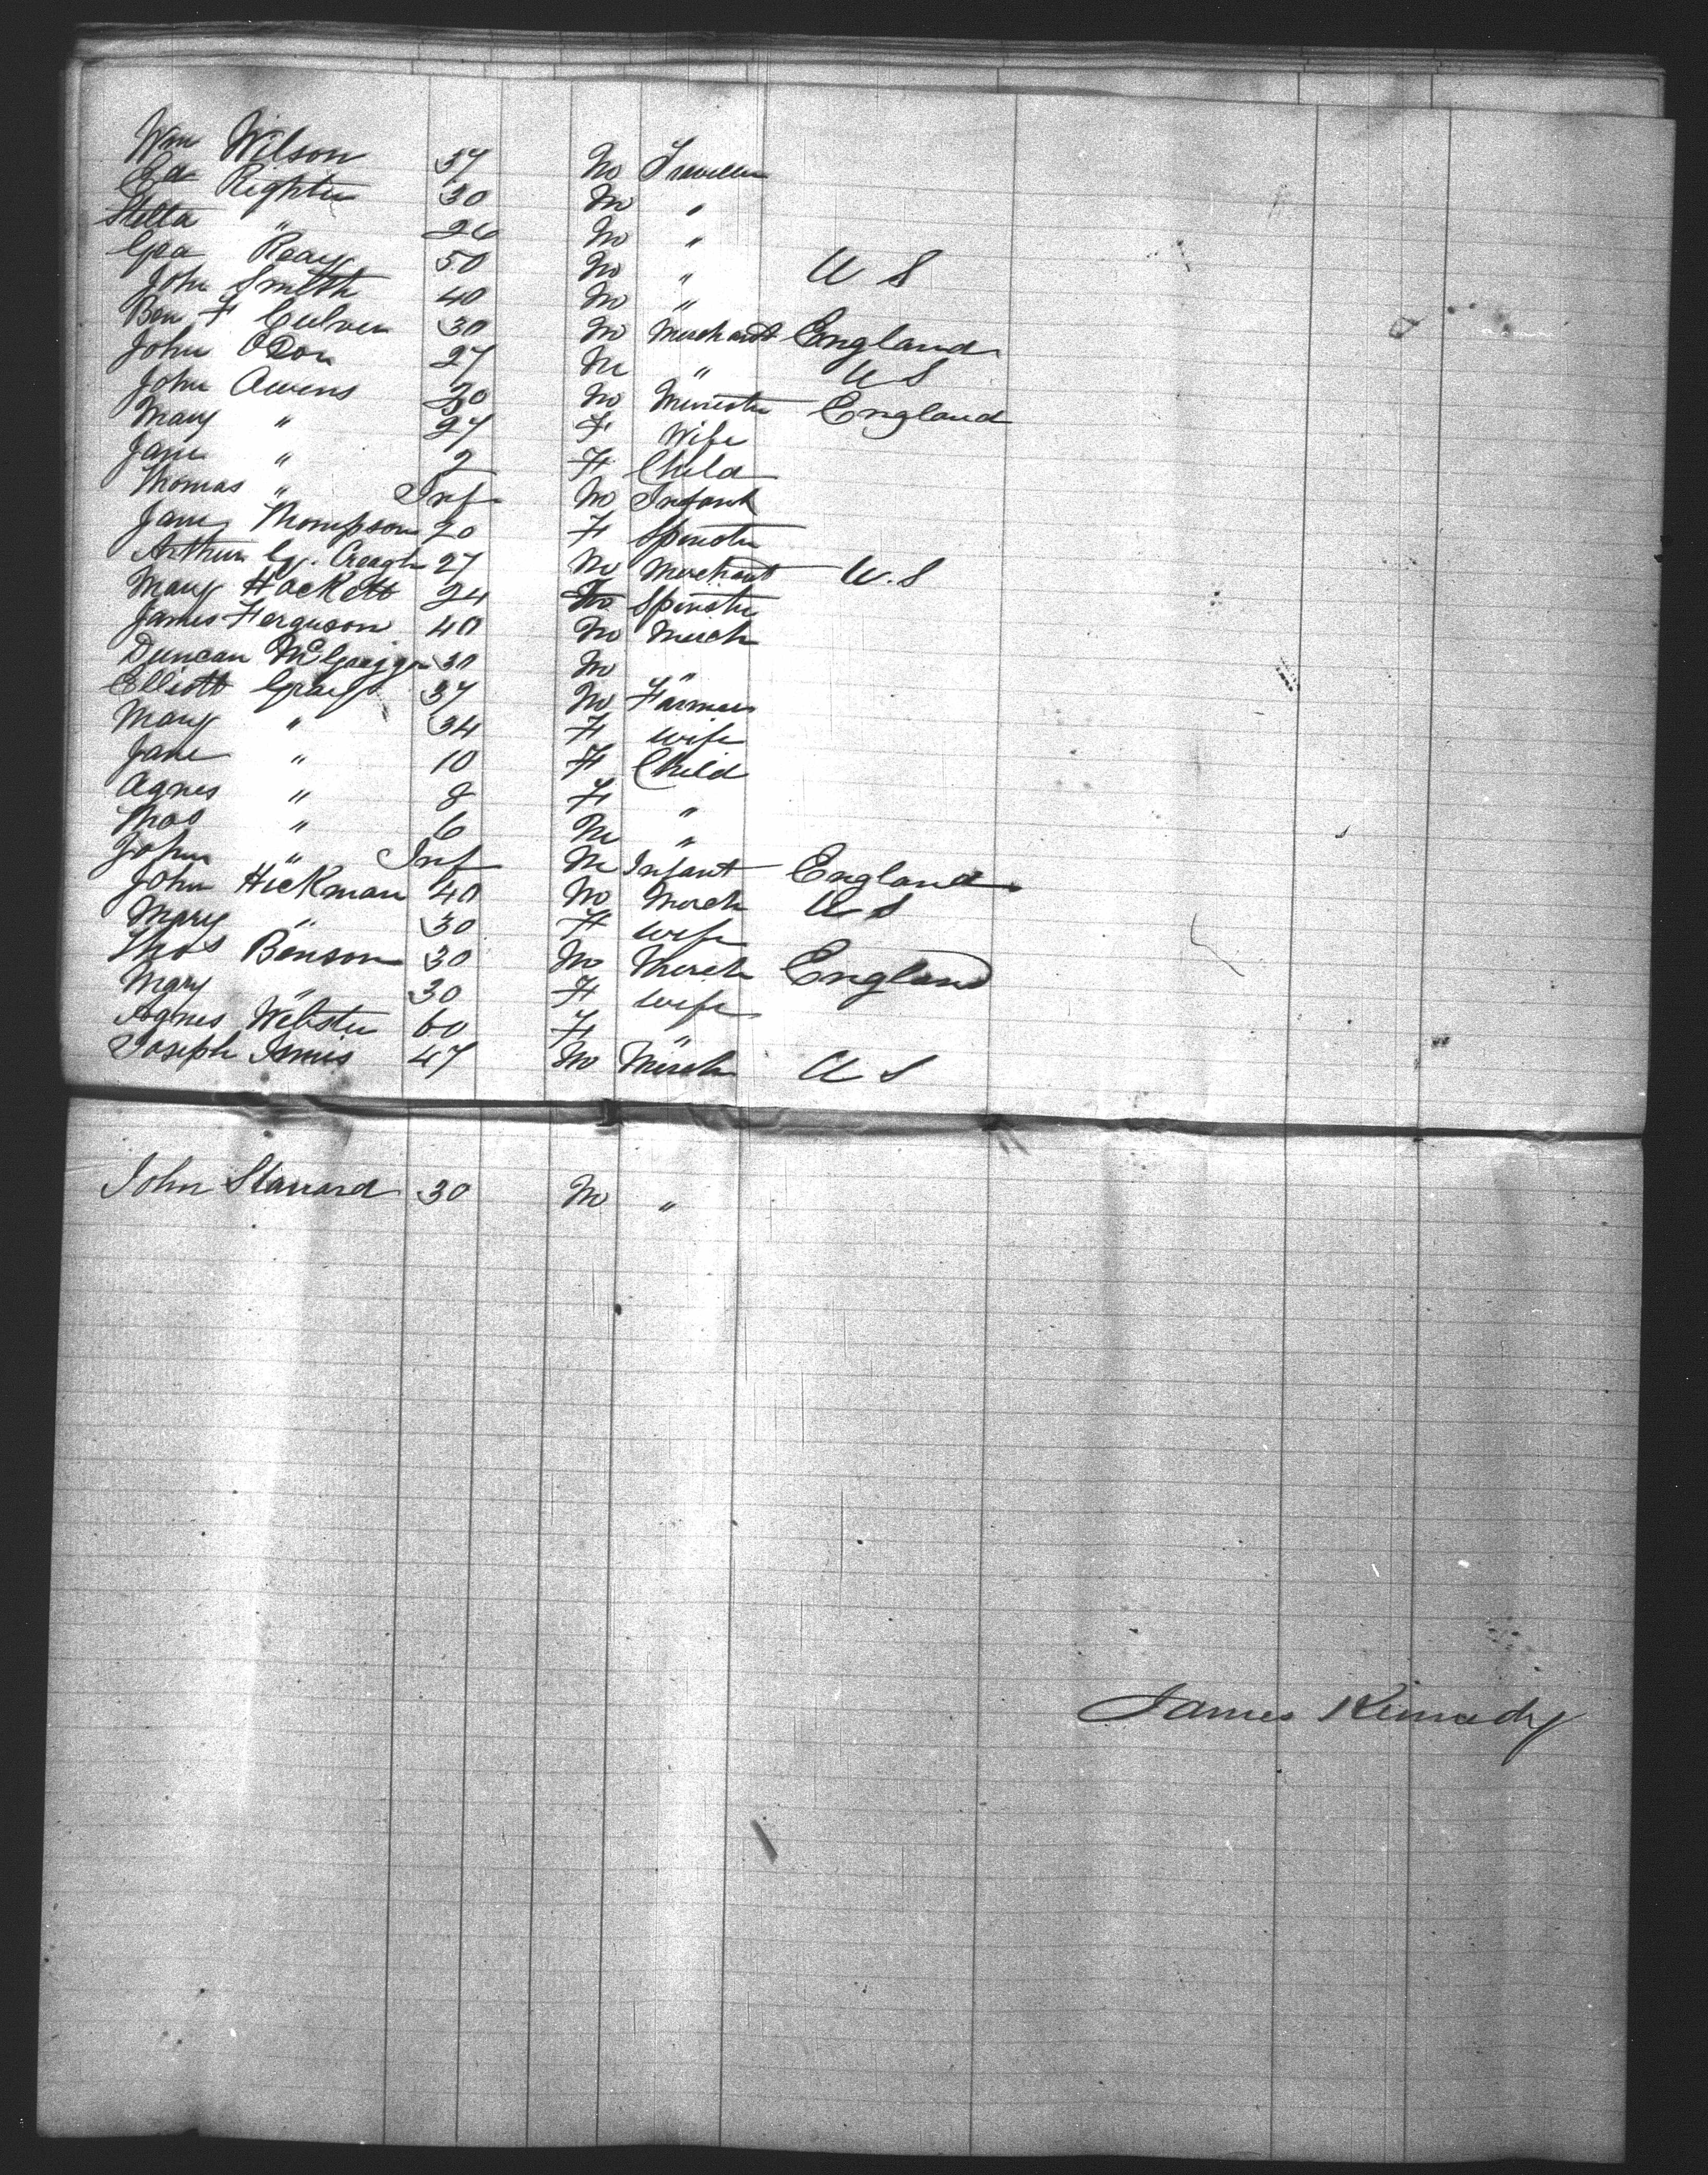 Wm Wilson 37 M Traveller
Ed Righter 30 M "
Stella " 26 M "
Geo Reay 50 M " U S
John Smith 40 M "
Ben F Culver 30 M Merchant England
John ODon 27 M " U S
John Owens 30 M Minister England
Mary " 27 F Wife
Jane " 2 F Child
Thomas " Inf M Infant
Jane Thompson 20 F Spinster
Arthur Creagh 27 M Merchant U.S
Mary Hackett 24 Spinster
James Ferguson 40 M Merch
Duncan McGreggor 30 M "
Elliott Gray 37 M Farmer
Mary " 34 F Wife
Jane " 10 F Child
Agnes " 8 F "
Thos " 6 M "
John " Inf M Infant England
John Hickman 40 M Merch U S
Mary " 30 F Wife
Thos Benson 30 M Merch England
Mary " 30 F Wife
Agnes Webster 60 F "
Joseph Innis 47 M Merch U S
John Stannard 30 M "
James Kennedy